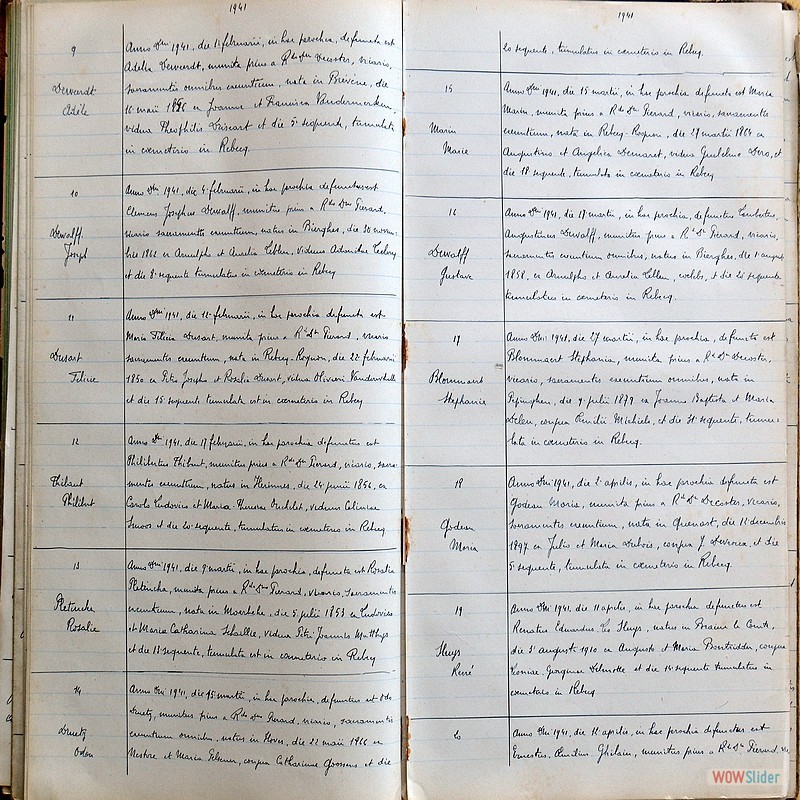 1941
9
Adèle
Anno Dni 1941, die 1 februarii, in hac parochia, defuncta est
Adelia, munita prius a Rdo Dno Decoster, vicario,
sacramentis omnibus exeuntium, nata in, die
16 maii 1876 ex Joanne et Francisca
vidua Theophilis et die 5 sequente, tumulata
in cœmeterio in Rebecq.
10
Dewolff
Joseph
Anno Dni 1941, die 4 februarii, in hac parochia defunctus est
Clemens Josephus Dewolff, munitus prius a Rdo Dno Pierard,
vicario sacramentis exeuntium, natus in Bierghes, die 30 novem-
bris 1861 ex Arnulpho et Amelia, viduus
et die 8 sequente tumulatus in cœmeterio in Rebecq
11
Dusart
Félicie
Anno Dni 1941, die 12 februarii, in hac parochia defuncta est
Maria Felicia Dusart, munita prius a Rdo Do Pierard, vicario
sacramentis exeuntium, nata in Rebecq-Rognon, die 22 februarii
1850 ex Petro Josepho et Rosalia, vidua Oliverii
et die 15 sequente tumulata est in cœmeterio in Rebecq
12
Thibaut
Philibert
Anno Dni 1941, die 17 februarii, in hac parochia defunctus est
Philibertus Thibaut, munitus prius a Rdo Do Pierard, vicario, sacra-
mentis exeuntium, natus in Herinnes, die 24 junii 1856, ex
Carolo Ludovico et Maria-Theresa, viduus
et die 20 sequente, tumulatus in cœmeterio in Rebecq.
13
Pletincks
Rosalie
Anno Dni 1941, die 9 martii, in hac parochia, defuncta est Rosalia
Pletincks, munita prius a Rdo Do Pierard, vicario, sacramentis
exeuntium, nata in Moerbeke, die 5 julii 1853 ex Ludovico
et Maria Catharina, vidua Petri Joannis Matthys
et die 13 sequente, tumulata est in cœmeterio in Rebecq
14
Odon
Anno Dni 1941, die 15 martii, in hac parochia, defunctus est Odo
munitus prius a Rdo Dno Pierard, vicario, sacramentis
exeuntium omnibus, natus in Hoves, die 22 maii 1866 ex
Nestore et Maria, conjux Catharinae Goossens et die
1941
20 sequente, tumulatus in cœmeterio in Rebecq.
15
Marin
Marie
Anno Dni 1941, die 15 martii, in hac parochia defuncta est Maria
Marin, munita prius a Rdo Do Pierard, vicario, sacramentis
exeuntium, nata in Rebecq-Rognon, die 27 martii 1864 ex
Augustino et Angelica Demaret, vidua Gulielmo, et
die 18 sequente, tumulata in cœmeterio in Rebecq
16
Dewolff
Gustave
Anno Dni 1941, die 17 martii, in hac parochia, defunctus
Augustinus Dewolff, munitus prius a Rdo Do Pierard, vicario,
sacramentis exeuntium omnibus, natus in Bierghes, die 1 augusti
1858, ex Arnulpho et Amelia, celebs, et die 20 sequente
tumulatus in cœmeterio in Rebecq.
17
Blommaert
Stephanie
Anno Dni 1941, die 27 martii, in hac parochia, defuncta est
Blommaert Stephania, munita prius a Rdo Do Decoster,
vicario, sacramentis exeuntium omnibus, nata in
die 9 julii 1879 ex Joanne Baptista et Maria
conjux Emilii Michiels, et die 31 sequente, tumu-
lata in cœmeterio in Rebecq.
18
Godeau
Maria
Anno Dni 1941, die 2 aprilis, in hac parochia defuncta est
Godeau Maria, munita prius a Rdo Do Decoster, vicario,
sacramentis exeuntium, nata in Quenast, die 12 decembris
1897 ex Julio et Maria Dubois, conjux J et die
5 sequente, tumulata in cœmeterio in Rebecq.
19
René
Anno Dni 1941, die 11 aprilis, in hac parochia defunctus est
Renatus Eduardus, natus in Braine le Comte,
die 31 augusti 1910 ex Augusto et Maria, conjux
Georgina Delmotte et die 14 sequente tumulatus in
cœmeterio in Rebecq
20
Anno Dni 1941, die 12 aprilis, in hac parochia defunctus est
Ernestus Ghilain, munitus prius a Rdo Do Pierard,
WOWSlider